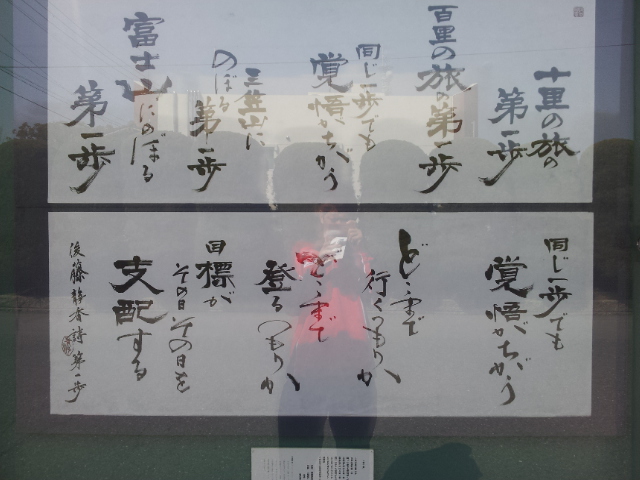 十里の旅の
第一歩
百里の旅の第一歩
同じ一歩でも
覚悟がちがう
三笠山に
のぼる
第一歩
富士山にのぼる
第一歩
同じ一歩でも
覚悟がちがう
どこまで
行くつもりか
どこまで
登るつもりか
目標が
その日その日を
支配する
後藤静香詩 第一歩